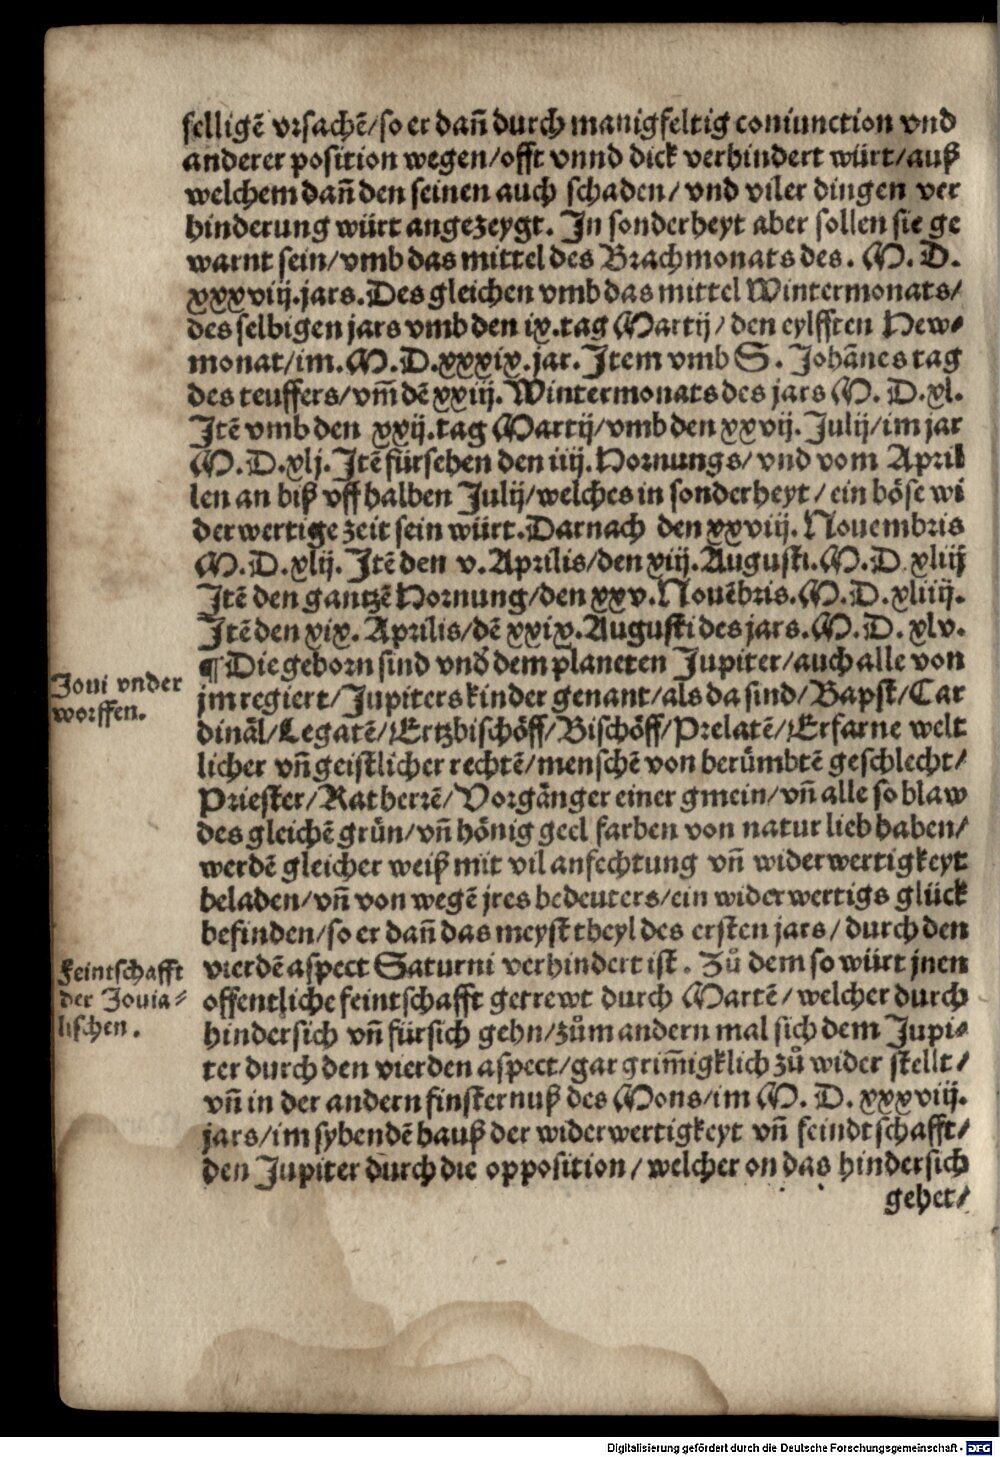 felligẽ vrsachẽ/so er dañ durch manigfeltig coniunction vnd
anderer position wegen/offt vnnd dick verhindert würt/auß
welchem dañ den seinen auch schaden/ vnd viler dingen ver
hinderung würt angezeygt. In sonderheyt aber sollen sie ge
warnt sein/vmb das mittel des Brachmonats des. M. D.
xxxviij.jars. Des gleichen vmb das mittel Wintermonats/
des selbigen jars vmb den ix.tag Martij/ den eylfften New⸗
monat/im. M. D.xxxix.jar. Item vmb S. Johãnes tag
des teuffers/vm̃ dẽ xxiij. Wintermonats des jars M. D.xl.
Itẽ vmb den xxij.tag Martij/vmb den xxvij. Julij/im jar
M. D.xlj. Itẽ fürsehen den iiij. Hornungs/ vnd vom April
len an biß vff halben Julij/welches in sonderheyt/ ein böse wi
derwertige zeit sein würt. Darnach den xxviij. Nouembris
M. D.xlij. Itẽ den v. Aprilis/den xiij. Augusti. M. D. xliij
Itẽ den gantzẽ Hornung/den xxv. Nouẽbris. M. D.xliiij.
Itẽ den xix. Aprilis/dẽ xxix. Augusti des jars. M. D. xlv.
Joui vnder
worffen.
¶ Die geborn sind vnď dem planeten Jupiter/auch alle von
jm regiert/Jupiters kinder genant/als da sind/Bapst/Car
dinãl/Legatẽ/Ertzbischöff/Bischöff/Prelatẽ/Erfarne welt
licher vñ geistlicher rechtẽ/menschẽ von berümbtẽ geschlecht/
Priester/Ratherrẽ/Vorgänger einer gmein/vñ alle so blaw
des gleichẽ grün/vñ hönig geel farben von natur lieb haben/
werdẽ gleicher weiß mit vil anfechtung vñ widerwertigkeyt
beladen/vñ von wegẽ jres bedeuters/ein widerwertigs glück
befinden/so er dañ das meyst theyl des ersten jars/ durch den
Feintschafft
der Jouia⸗
lischen.
vierdẽ aspect Saturni verhindert ist. Zů dem so würt jnen
offentliche feintschafft getrewt durch Martẽ/welcher durch
hindersich vñ fürsich gehn/zům andern mal sich dem Jupi⸗
ter durch den vierden aspect/gar grim̃igklich zů wider stellt/
vñ in der andern finsternuß des Mons/im M. D. xxxviij.
jars/im sybendẽ hauß der widerwertigkeyt vñ feindtschafft/
den Jupiter durch die opposition/welcher on das hindersich
gehet/
Digitalisierung gefördert durch die Deutsche Forschungsgemeinschaft - DFG